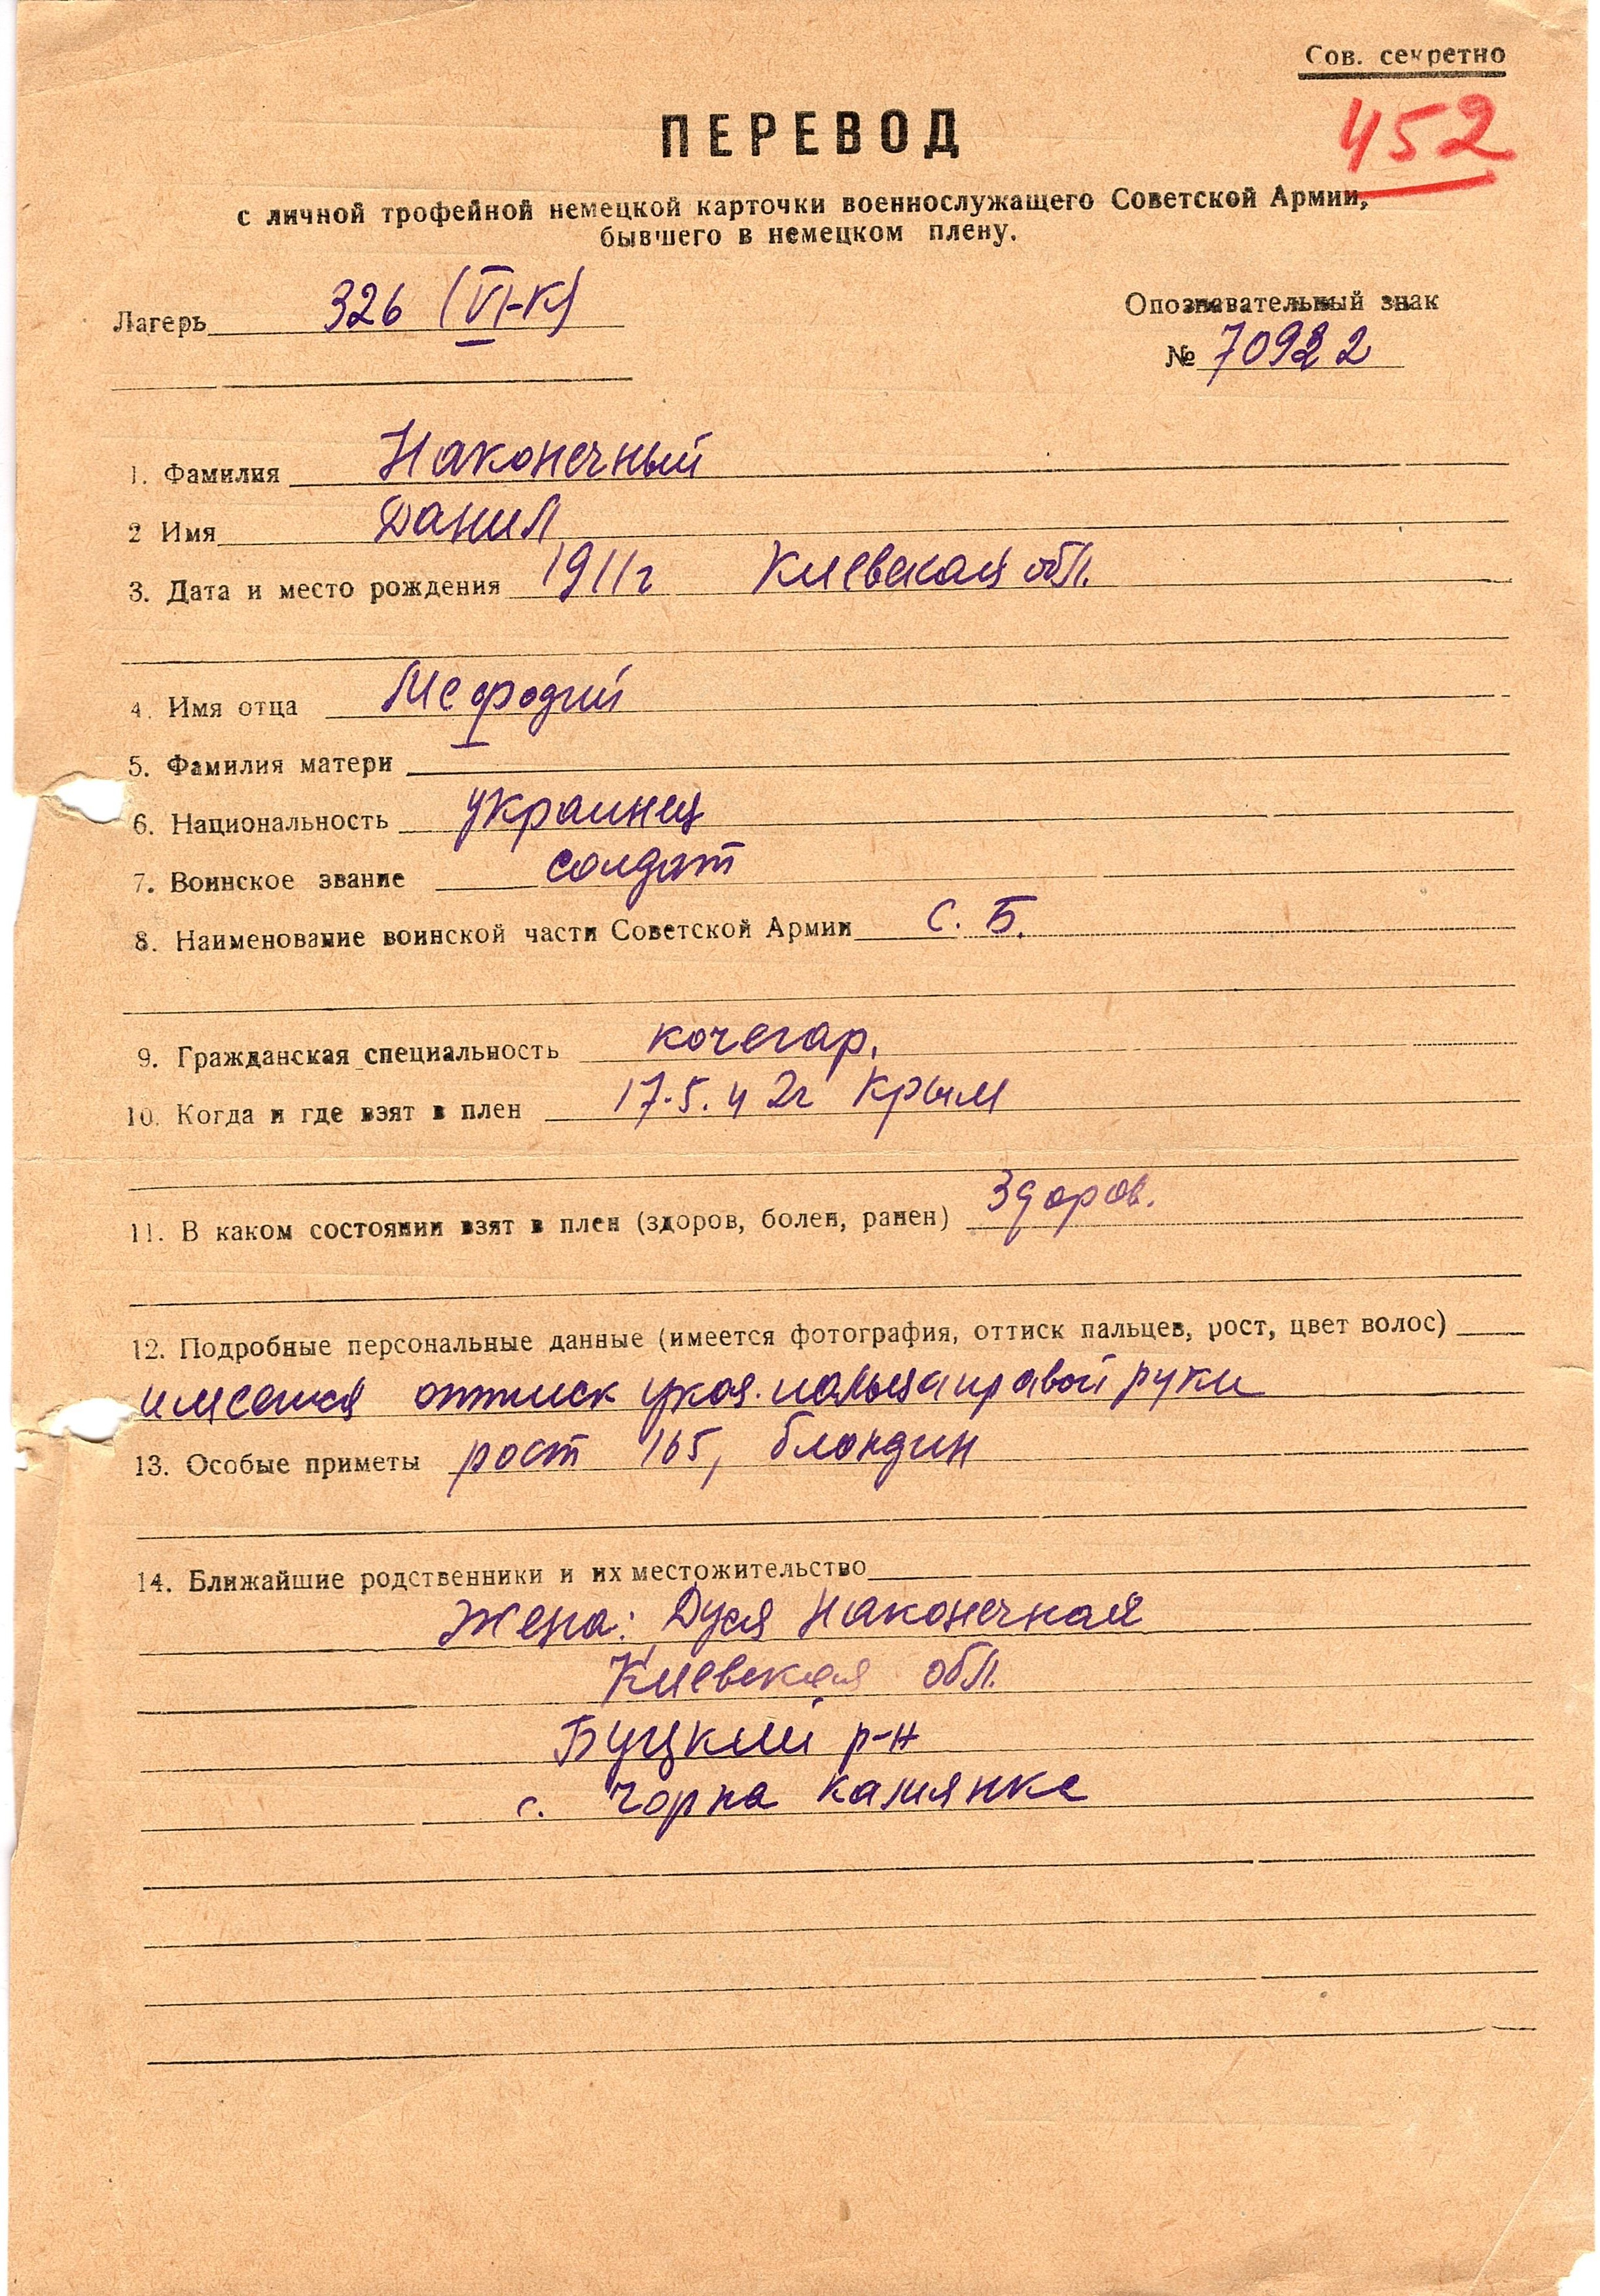 Сов. секретно
452
ПЕРЕВОД
с личной трофейной немецкой карточки военнослужащего Советской Армии,
бывшего в немецком плену.
Лагерь 326 (VI-К)
Опознавательный знак
№ 70922
1. Фамилия Наконечный
2 Имя Данил
3. Дата и место рождения 1911г Киевская обл.
4. Имя отца Мефодий
5. Фамилия матери
6. Национальность украинец
7. Воинское звание солдат
8. Наименование воинской части Советской Армии С. Б.
9. Гражданская специальность кочегар.
10. Когда и где взят в плен 17.5.42г Крым
11. В каком состоянии взят в плен (здоров, болен, ранен) Здоров.
12. Подробные персональные данные (имеется фотография, оттиск пальцев, рост, цвет волос)
имеется оттиск указ. пальца правой руки
13. Особые приметы рост 165, блондин
14. Ближайшие родственники и их местожительство
Жена: Дуся Наконечная
Киевская обл.
Буцкий р-н
с. Чорна Камянка